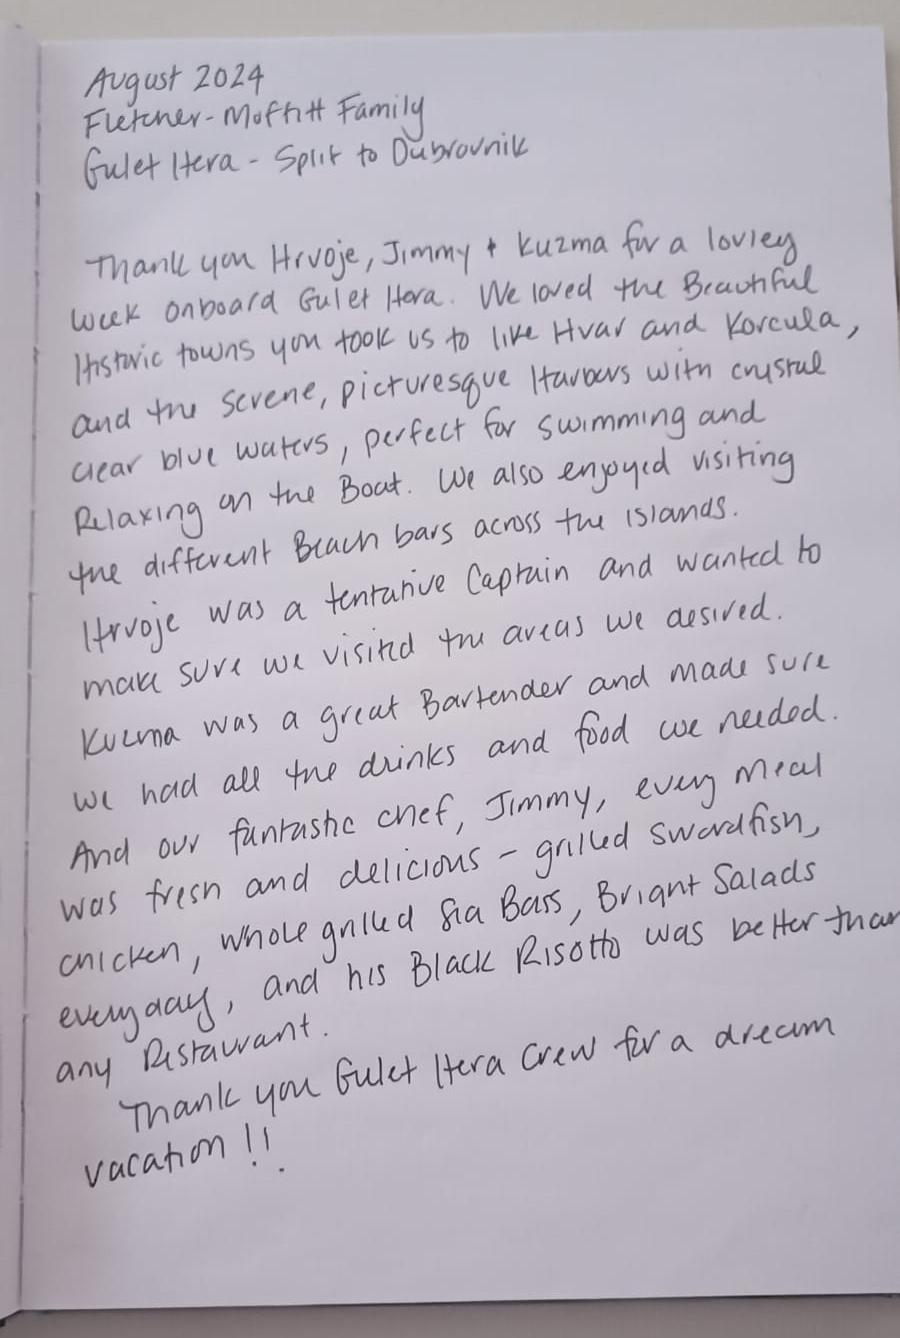 August 2024
Fletcher-Moffitt Family
Gulet Hera - Split to Dubrovnik
Thank you Hrvoje, Jimmy + Kuzma for a lovley
week onboard Gulet Hera. We loved the Beautiful
Historic towns you took us to like Hvar and Korcula,
and the serene, picturesque Harbors with crystal
clear blue waters, perfect for swimming and
Relaxing on the Boat. We also enjoyed visiting
the different Beach bars across the islands.
Hrvoje was a tentative Captain and wanted to
make sure we visited the areas we desired.
Kuzma was a great Bartender and made sure
we had all the drinks and food we needed.
And our fantastic chef, Jimmy, every meal
was fresh and delicious - grilled swordfish,
chicken, whole grilled Sea Bass, Bright Salads
everyday, and his Black Risotto was better than
any Restaurant.
Thank you Gulet Hera Crew for a dream
vacation !!